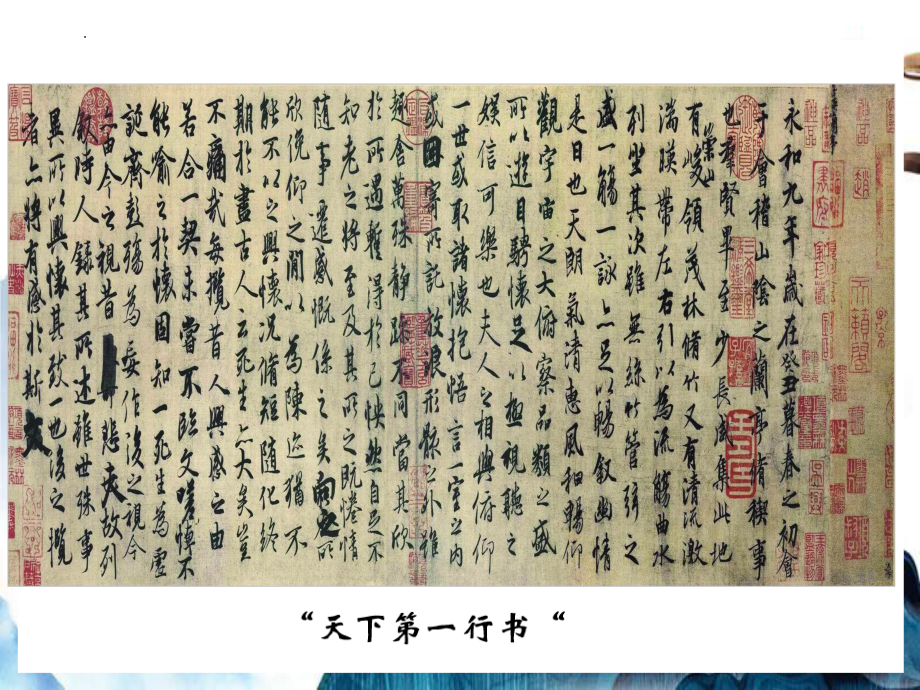 永和九年歲在癸丑暮春之初會
于會稽山陰之蘭亭脩稧事
也羣賢畢至少長咸集此地
有崇山峻領茂林脩竹又有清流激
湍暎帶左右引以為流觴曲水
列坐其次雖無絲竹管弦之
盛一觴一詠亦足以暢敘幽情
是日也天朗氣清惠風和暢仰
觀宇宙之大俯察品類之盛
所以遊目騁懷足以極視聽之
娛信可樂也夫人之相與俯仰
一世或取諸懷抱悟言一室之內
或因寄所託放浪形骸之外雖
趣舍萬殊靜躁不同當其欣
於所遇暫得於己怏然自足不
知老之將至及其所之既惓情
隨事遷感慨係之矣向之所
欣俛仰之閒以為陳迹猶不
能不以之興懷况脩短隨化終
期於盡古人云死生亦大矣豈
不痛哉每攬昔人興感之由
若合一契未嘗不臨文嗟悼不
能喻之於懷固知一死生為虛
誕齊彭殤為妄作後之視今
亦由今之視昔悲夫故列
敘時人錄其所述雖世殊事
異所以興懷其致一也後之攬
者亦將有感於斯文
“天下第一行书“